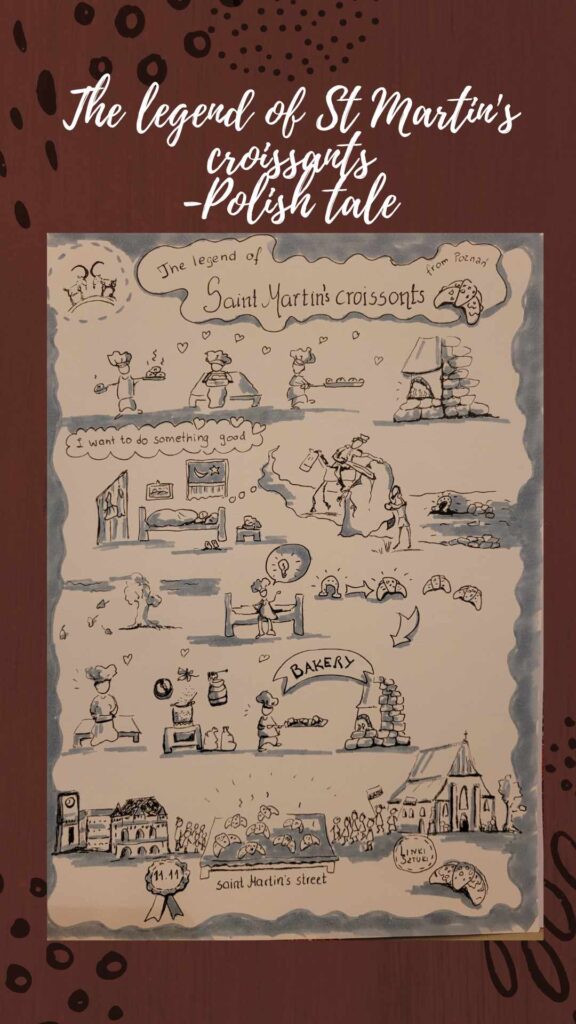 The legend of St Martin's
croissants
-Polish tale
The legend of
from Poznań
Saint Martin's croissonts
I want to do something good
BAKERY
LINKI
SZTUKI
11.11
Saint Martin's street